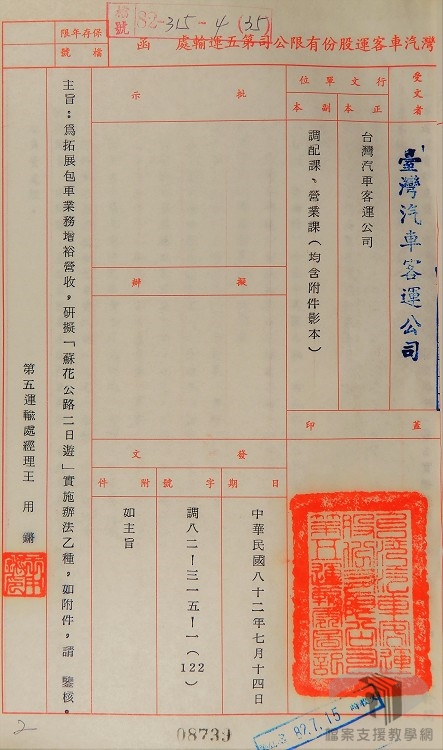 檔號 82-315-4(35)
灣汽車客運股份有限公司第五運輸處 函
保存年限
檔號
受文者
臺灣汽車客運公司
行文單位
正本
副本
台灣汽車客運公司
調配課、營業課（均含附件影本）
蓋印
發文
日期
字號
附件
中華民國八十二年七月十四日
調八二—三一五—一（122）
如主旨
批示
擬辦
主旨：為拓展包車業務增裕營收，研擬「蘇花公路二日遊」實施辦法乙種，如附件，請 鑒核。
第五運輸處經理王用
2
08739
82.7.15
檔案支援教學網